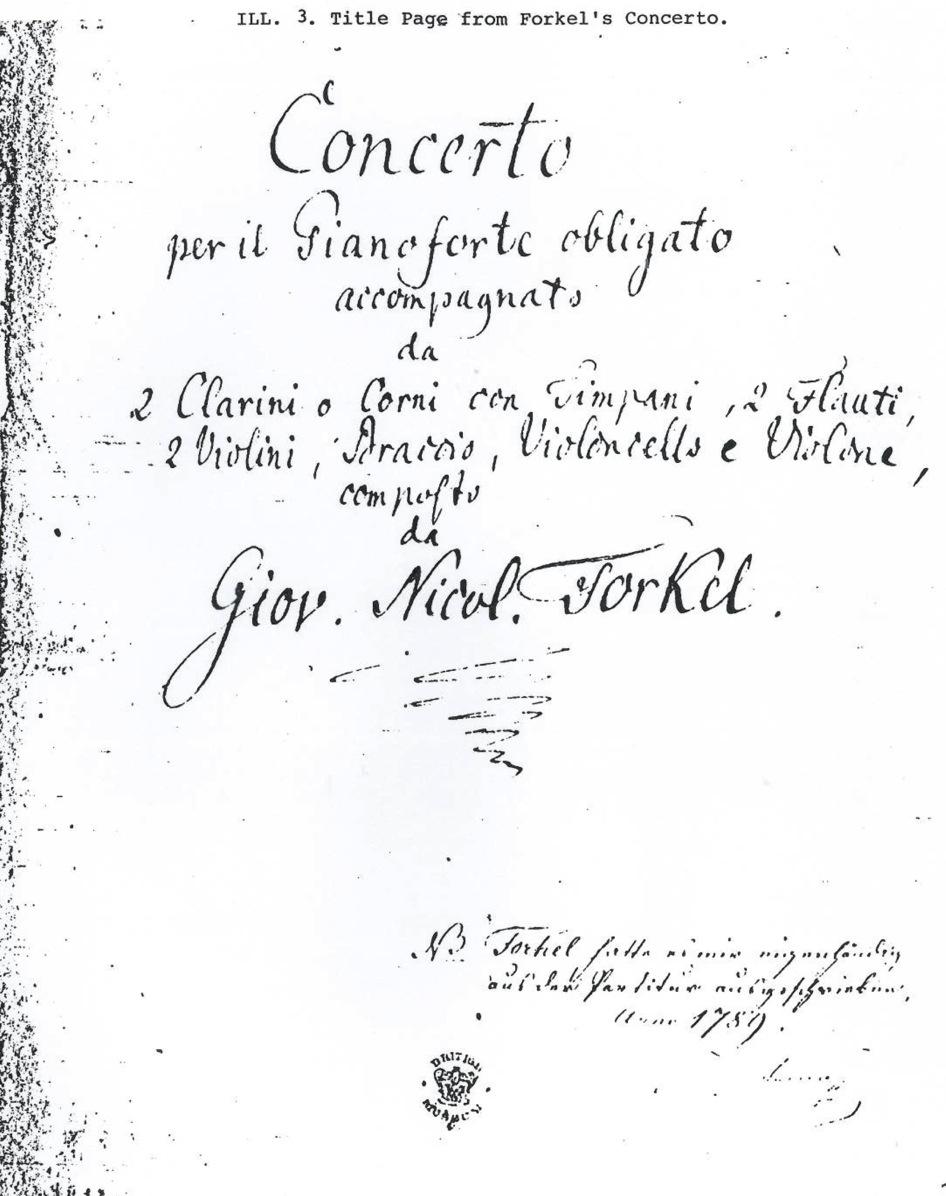 ILL. 3. Title Page from Forkel's Concerto.
Concerto
per il Pianoforte obligato
accompagnato
da
2 Clarini o Corni con Timpani, 2 Flauti,
2 Violini, Braccio, Violoncello e Violone,
composto
da
Giov. Nicol. Forkel.
NB Forkel hatte es mir eigenhändig
aus der Partitur ausgeschrieben,
Anno 1789.
BRITISH
MUSEUM